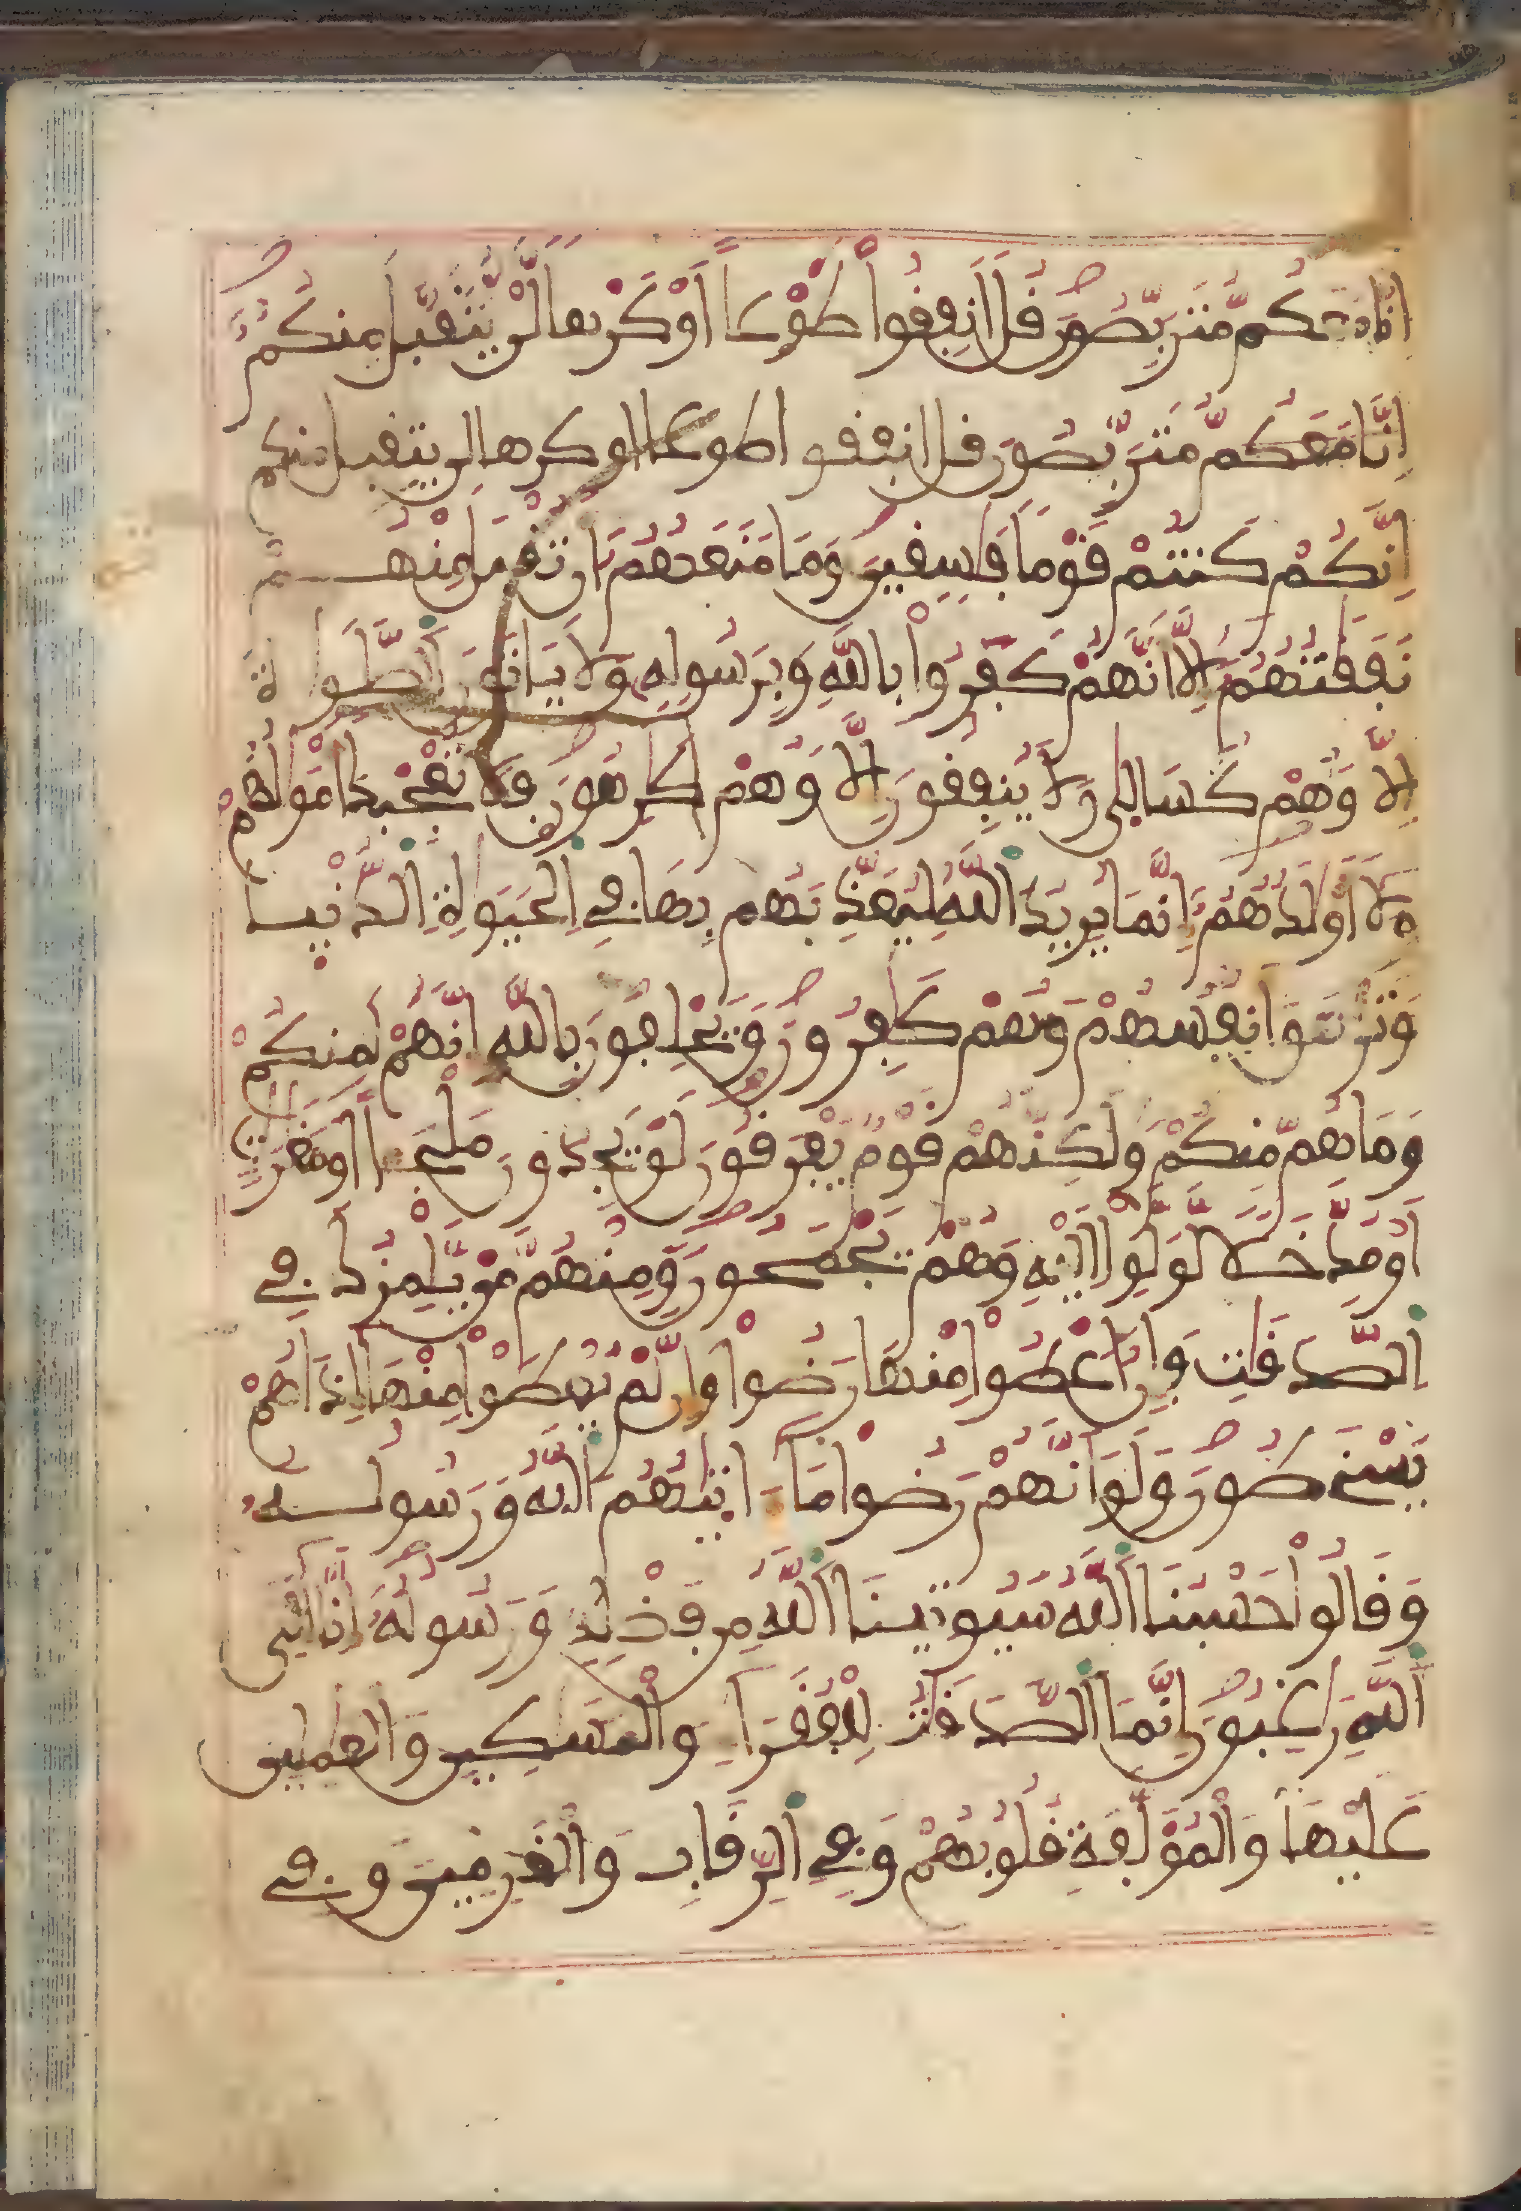 انا معكم متربصون قل انفقوا طوعا او كرها لن يتقبل منكم
انا معكم متربصون قل انفقوا طوعا او كرها لن يتقبل منكم
انكم كنتم قوما فاسقين وما منعهم ان تقبل منهم
نفقتهم الا انهم كفروا بالله وبرسوله ولا ياتون الصلوة
الا وهم كسالى ولا ينفقون الا وهم كرهون فلا تعجبك امولهم
ولا اولدهم انما يريد الله ليعذبهم بها في الحيوة الدنيا
وتزهق انفسهم وهم كفرون ويحلفون بالله انهم لمنكم
وما هم منكم ولكنهم قوم يفرقون لو يجدون ملجا او مغرت
او مدخلا لولوا اليه وهم يجمحون ومنهم من يلمزك في
الصدقت وان اعطوا منها رضوا وان لم يعطوا منها اذا هم
يسخطون ولو انهم رضوا ما ءاتيهم الله ورسوله
وقالوا حسبنا الله سيوتينا الله من فضله ورسوله انا الى
الله رغبون انما الصدقت للفقراء والمسكين والعملين
عليها والمؤلفة قلوبهم وفي الرقاب والغرمين وفي